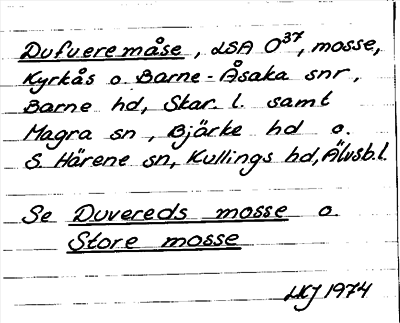 Dufveremåse, LSA O37, mosse,
Kyrkås o. Barne-Åsaka snr,
Barne hd, Skar. l. samt
Magra sn, Bjärke hd o.
S. Härene sn, Kullings hd, Älvsb. l.
Se Duvereds mosse o.
Store mosse
LKJ 1974